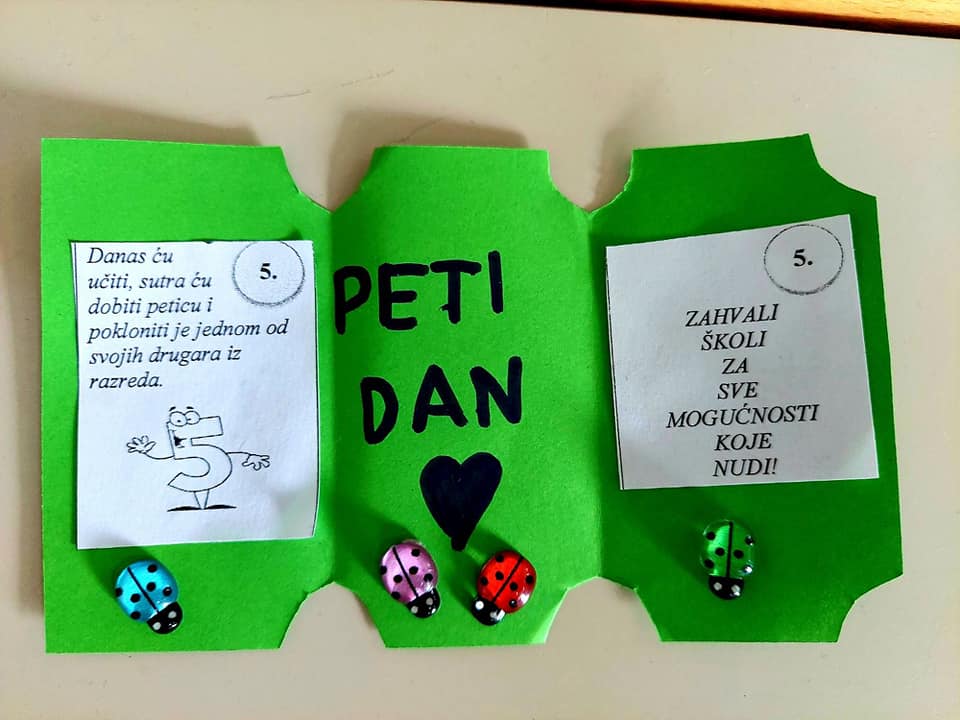 Danas ću
učiti, sutra ću
dobiti peticu i
pokloniti je jednom od
svojih drugara iz
razreda.
5.
5
PETI
DAN
5.
ZAHVALI
ŠKOLI
ZA
SVE
MOGUĆNOSTI
KOJE
NUDI!